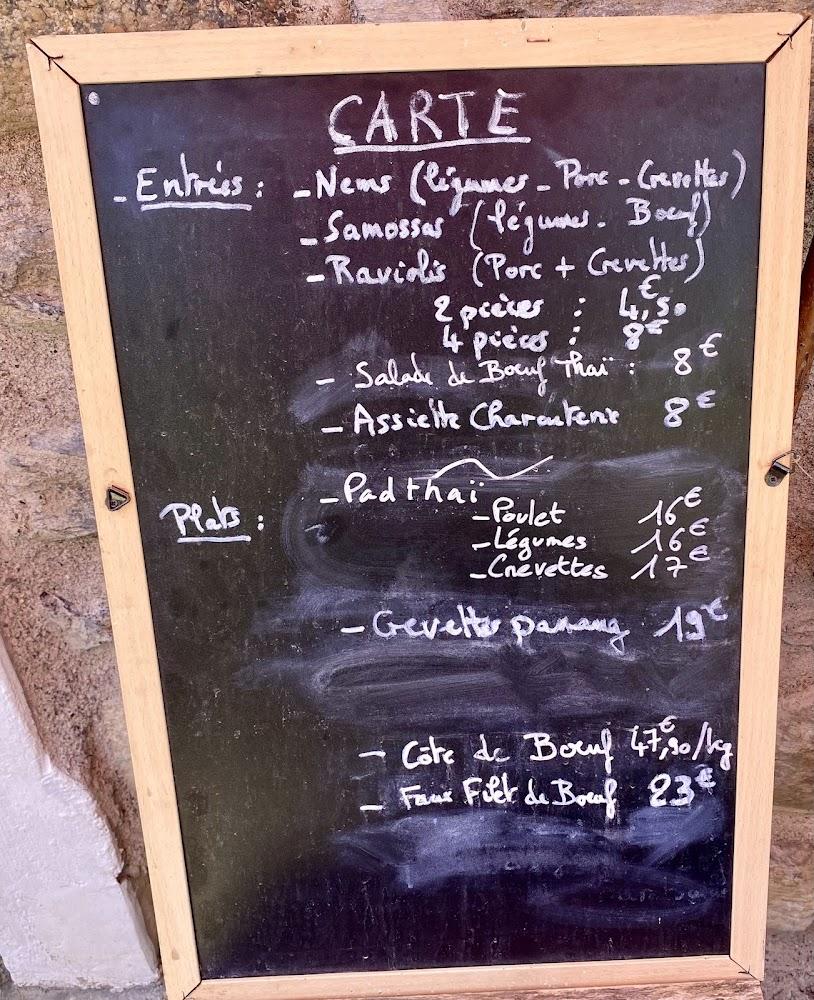 CARTE
- Entrées : - Nems (légumes - Porc - Crevettes)
- Samossas (légumes - Boeuf)
- Raviolis (Porc + Crevettes)
2 pièces : 4,50€
4 pièces : 8€
- Salade de Boeuf Thaï : 8€
- Assiette Charcuterie 8€
Plats : - Pad thaï
- Poulet 16€
- Légumes 16€
- Crevettes 17€
- Crevettes panang 19€
- Côte de Boeuf 47,90€/kg
- Faux Filet de Boeuf 23€